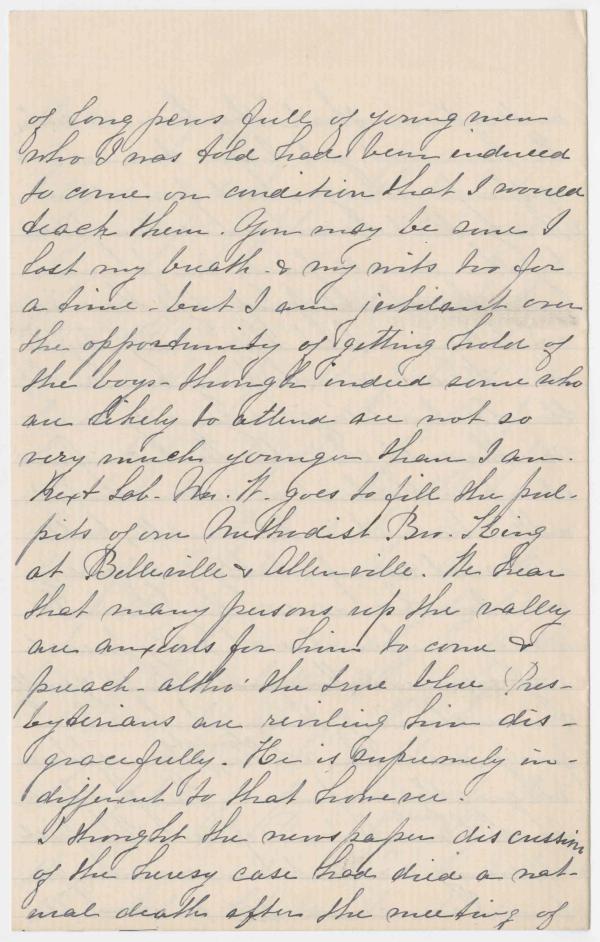 of long pews full of young men
who I was told had been induced
to come on condition that I would
teach them. You may be sure I
lost my breath - & my wits too for
a time - but I am jubilant over
the opportunity of getting hold of
the boys - though indeed some who
are likely to attend are not so
very much younger than I am.
Next Sab. Mr. W. goes to fill the pul-
pits of our Methodist Bro. King
at Belleville & Allenville. We hear
that many persons up the valley
are anxious for him to come &
preach - altho' the true blue Pres-
byterians are reviling him dis-
gracefully. He is supremely in-
different to that however.
I thought the newspaper discussion
of the heresy case had died a nat-
ural death after the meeting of